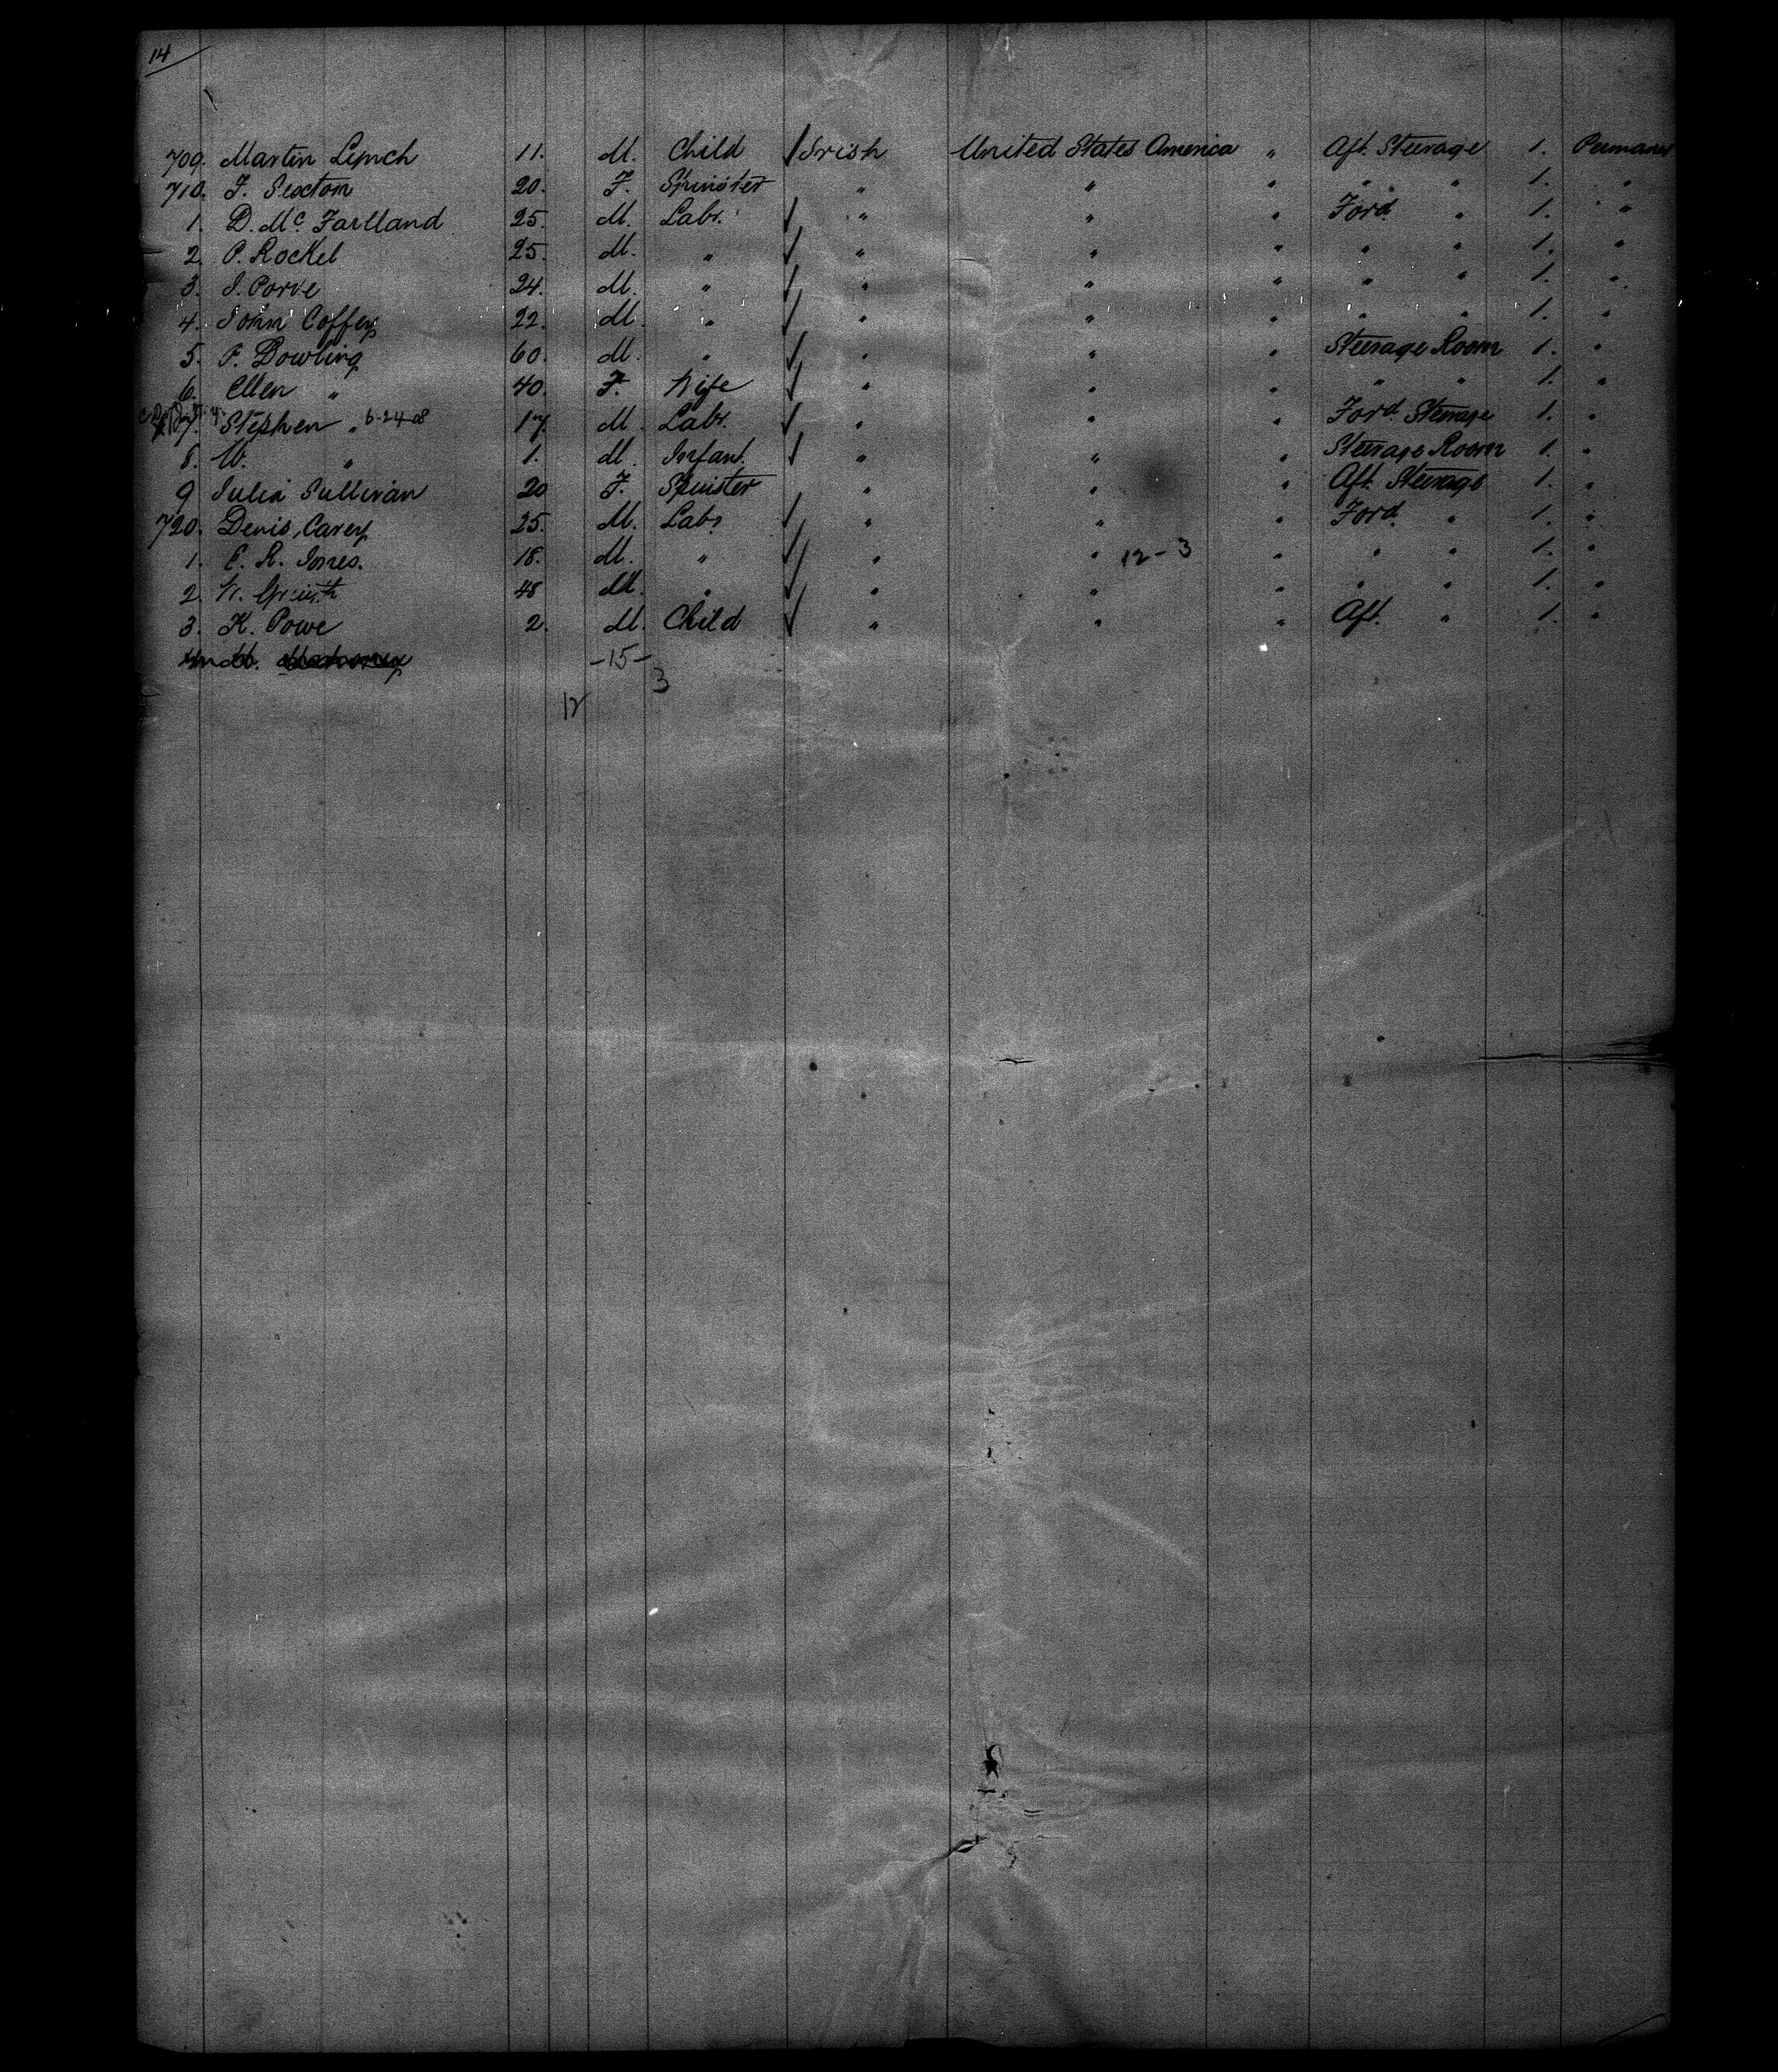 14
709. Martin Lynch 11. M. Child ✓ Irish United States America " Aft. Steerage 1. Permanen
710. F. Sexton 20. F. Spinster " " " " " 1. "
1. D. Mc. Fartland 25. M. Labr. ✓ " " " Ford. " 1. "
2. P. Rockel 25. M. " ✓ " " " " " 1. "
3. 24. M. " ✓ " " " " " 1. "
4. John Coffey 22. M. " ✓ " " " " " 1. "
5. P. Dowling 60. M. " ✓ " " " Steerage Room 1. "
6. Ellen " 40. F. Wife ✓ " " " " " 1. "
7. Stephen " 6-24-08 17. M. Labr. ✓ " " " Ford. Steerage 1. "
8. W. " 1. M. Infant. ✓ " " " Steerage Room 1. "
9 Julia Sullivan 20 F. Spinster " " " Aft. Steerage 1. "
720. Denis Carey 25. M. Labr ✓ " " " Ford. " 1. "
1. E. R. Jones. 18. M. " ✓ " " 12-3 " " " 1. "
2. 48 M. " ✓ " " " " " 1. "
3. K. Powe 2. M. Child ✓ " " " Aft. " 1. "
-15-
12 3